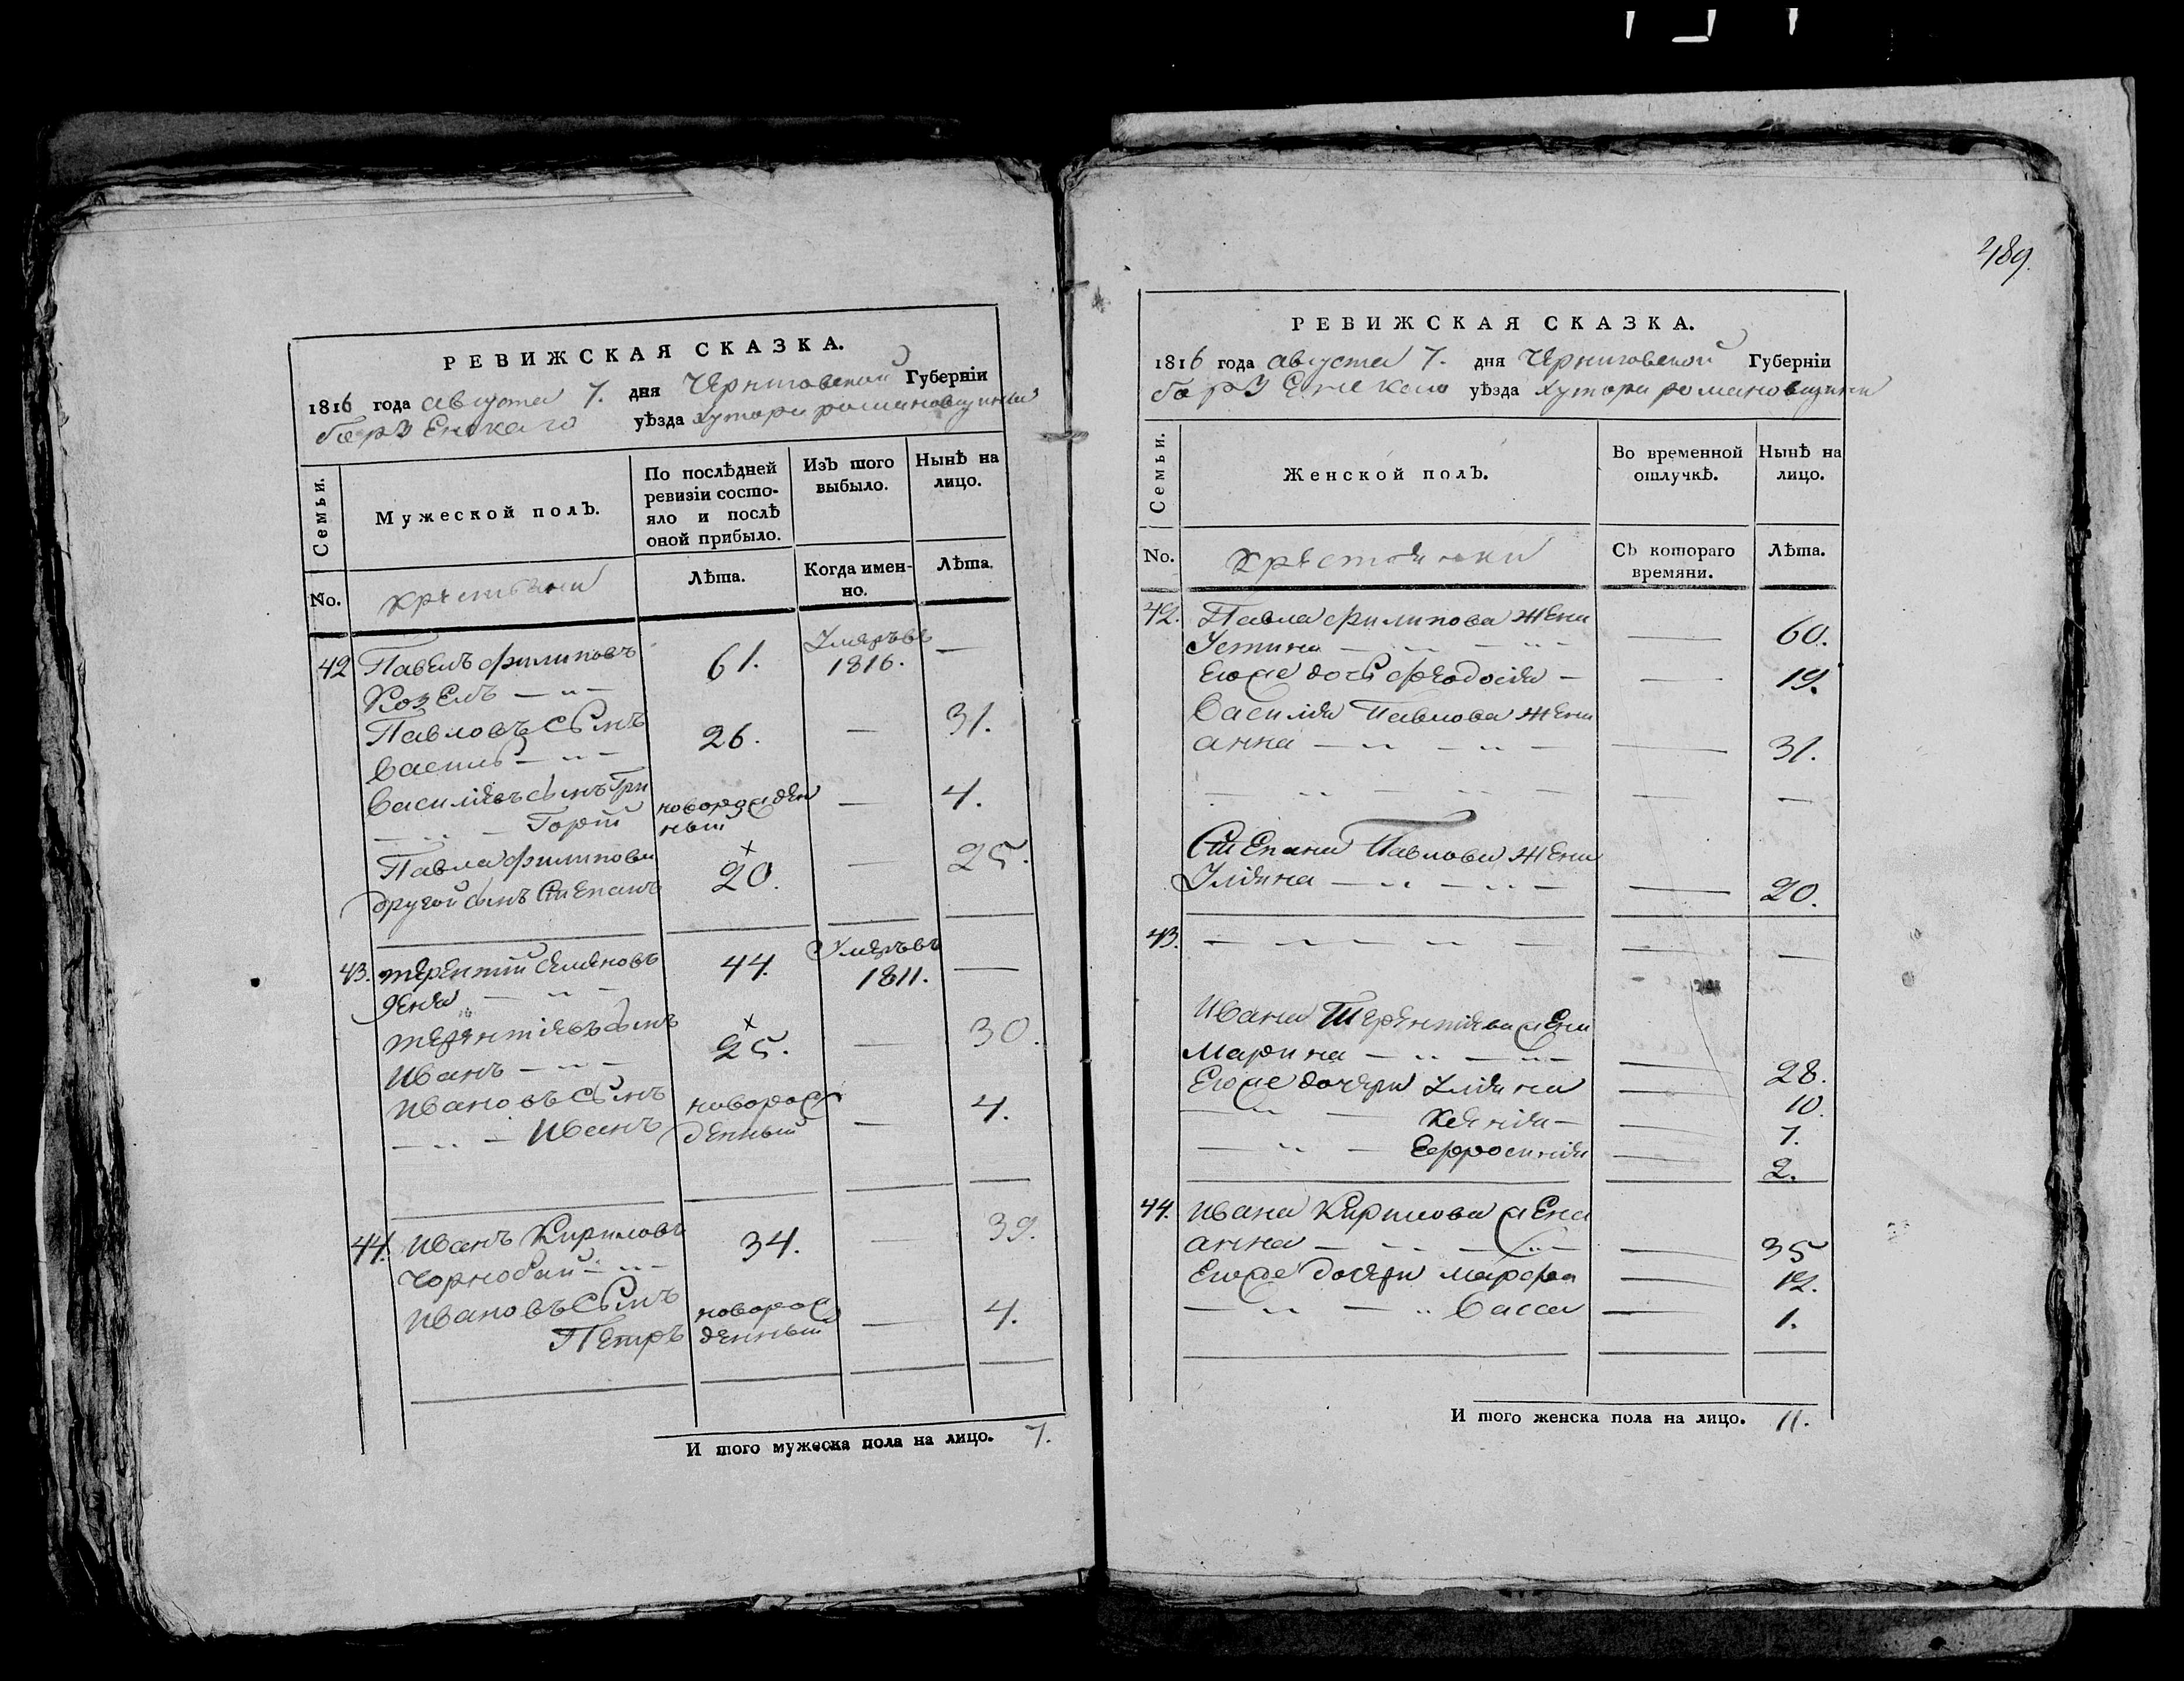 РЕВИЖСКАЯ СКАЗКА.
1816 года августа 7. дня Черниговской Губерніи
борзенскаго уѣзда хутора романовщини
Семьи.
Мужеской полЪ.
По послѣдней ревизіи состо-
яло и послѣ
оной прибыло.
ИзЪ того
выбыло.
НынѣЪ на
лицо.
No.
крестьяни
Лѣта.
Когда имен-
но.
Лѣта.
42 Павелъ филиповъ 61. Умеръ въ 1816. —
Козелъ
Павловъ сынъ 26. — 31.
Василь
Василіевъ сынъ Гри новорожден — 4.
Горій ный
Павла филипова × 20. — 25.
другой сынъ Степанъ
43. терентій семеновъ 44. Умеръ въ 1811. —
терентіевъ сынъ × 25. — 30.
Иванъ
Ивановъ сынъ новорож — 4.
Иванъ денный
44. Иванъ Кириловъ 34. — 39.
Чорнобай
Ивановъ сынъ новорож — 4.
Петръ денный
И того мужеска пола на лицо. 7.
489.
РЕВИЖСКАЯ СКАЗКА.
1816 года августа 7. дня Черниговской Губерніи
борзенскаго уѣзда хутора романовщини
Семьи.
Женской полЪ.
Во временной
отлучкѣ.
Нынѣ на
лицо.
No.
крестянки
СЪ котораго
времяни.
Лѣта.
42. Павла филипова жена
Устина — 60.
Егоже дочь феодосія — 19.
Василія Павлова жена
анна — 31.
Степана Павлова жена
Уліяна — 20.
43. —
Ивана Терентіева жена
Марина — 28.
Егоже дочери Уліяна — 10.
Ксенія — 7.
Ефросинія — 2.
44. Ивана Кирилова жена
анна — 35
Егоже дочери марфа — 12.
Васса — 1.
И того женска пола на лицо. 11.